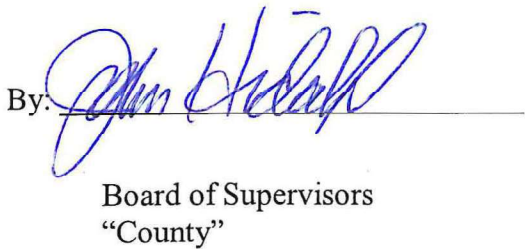 By:
Board of Supervisors
“County”